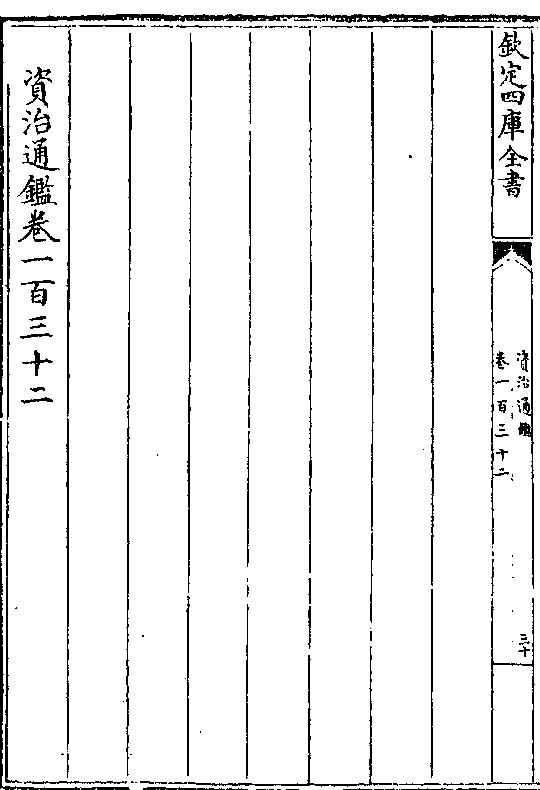 欽定四庫全書
資治通鑑
卷一百三十二
三十
資治通鑑卷一百三十二